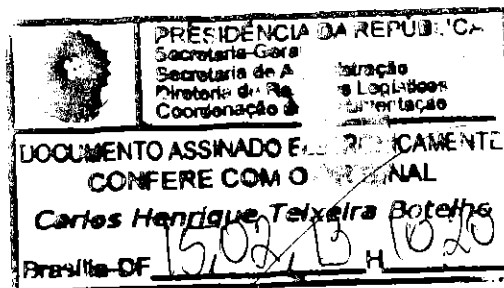 PRESIDÊNCIA DA REPÚBLICA
Secretaria-Geral
Secretaria de A istração
Diretoria de Re s Logísticos
Coordenação de
DOCUMENTO ASSINADO E ICAMENTE
CONFERE COM O NAL
Carlos Henrique Teixeira Botelho
Brasília-DF 15,02,13 H 1020